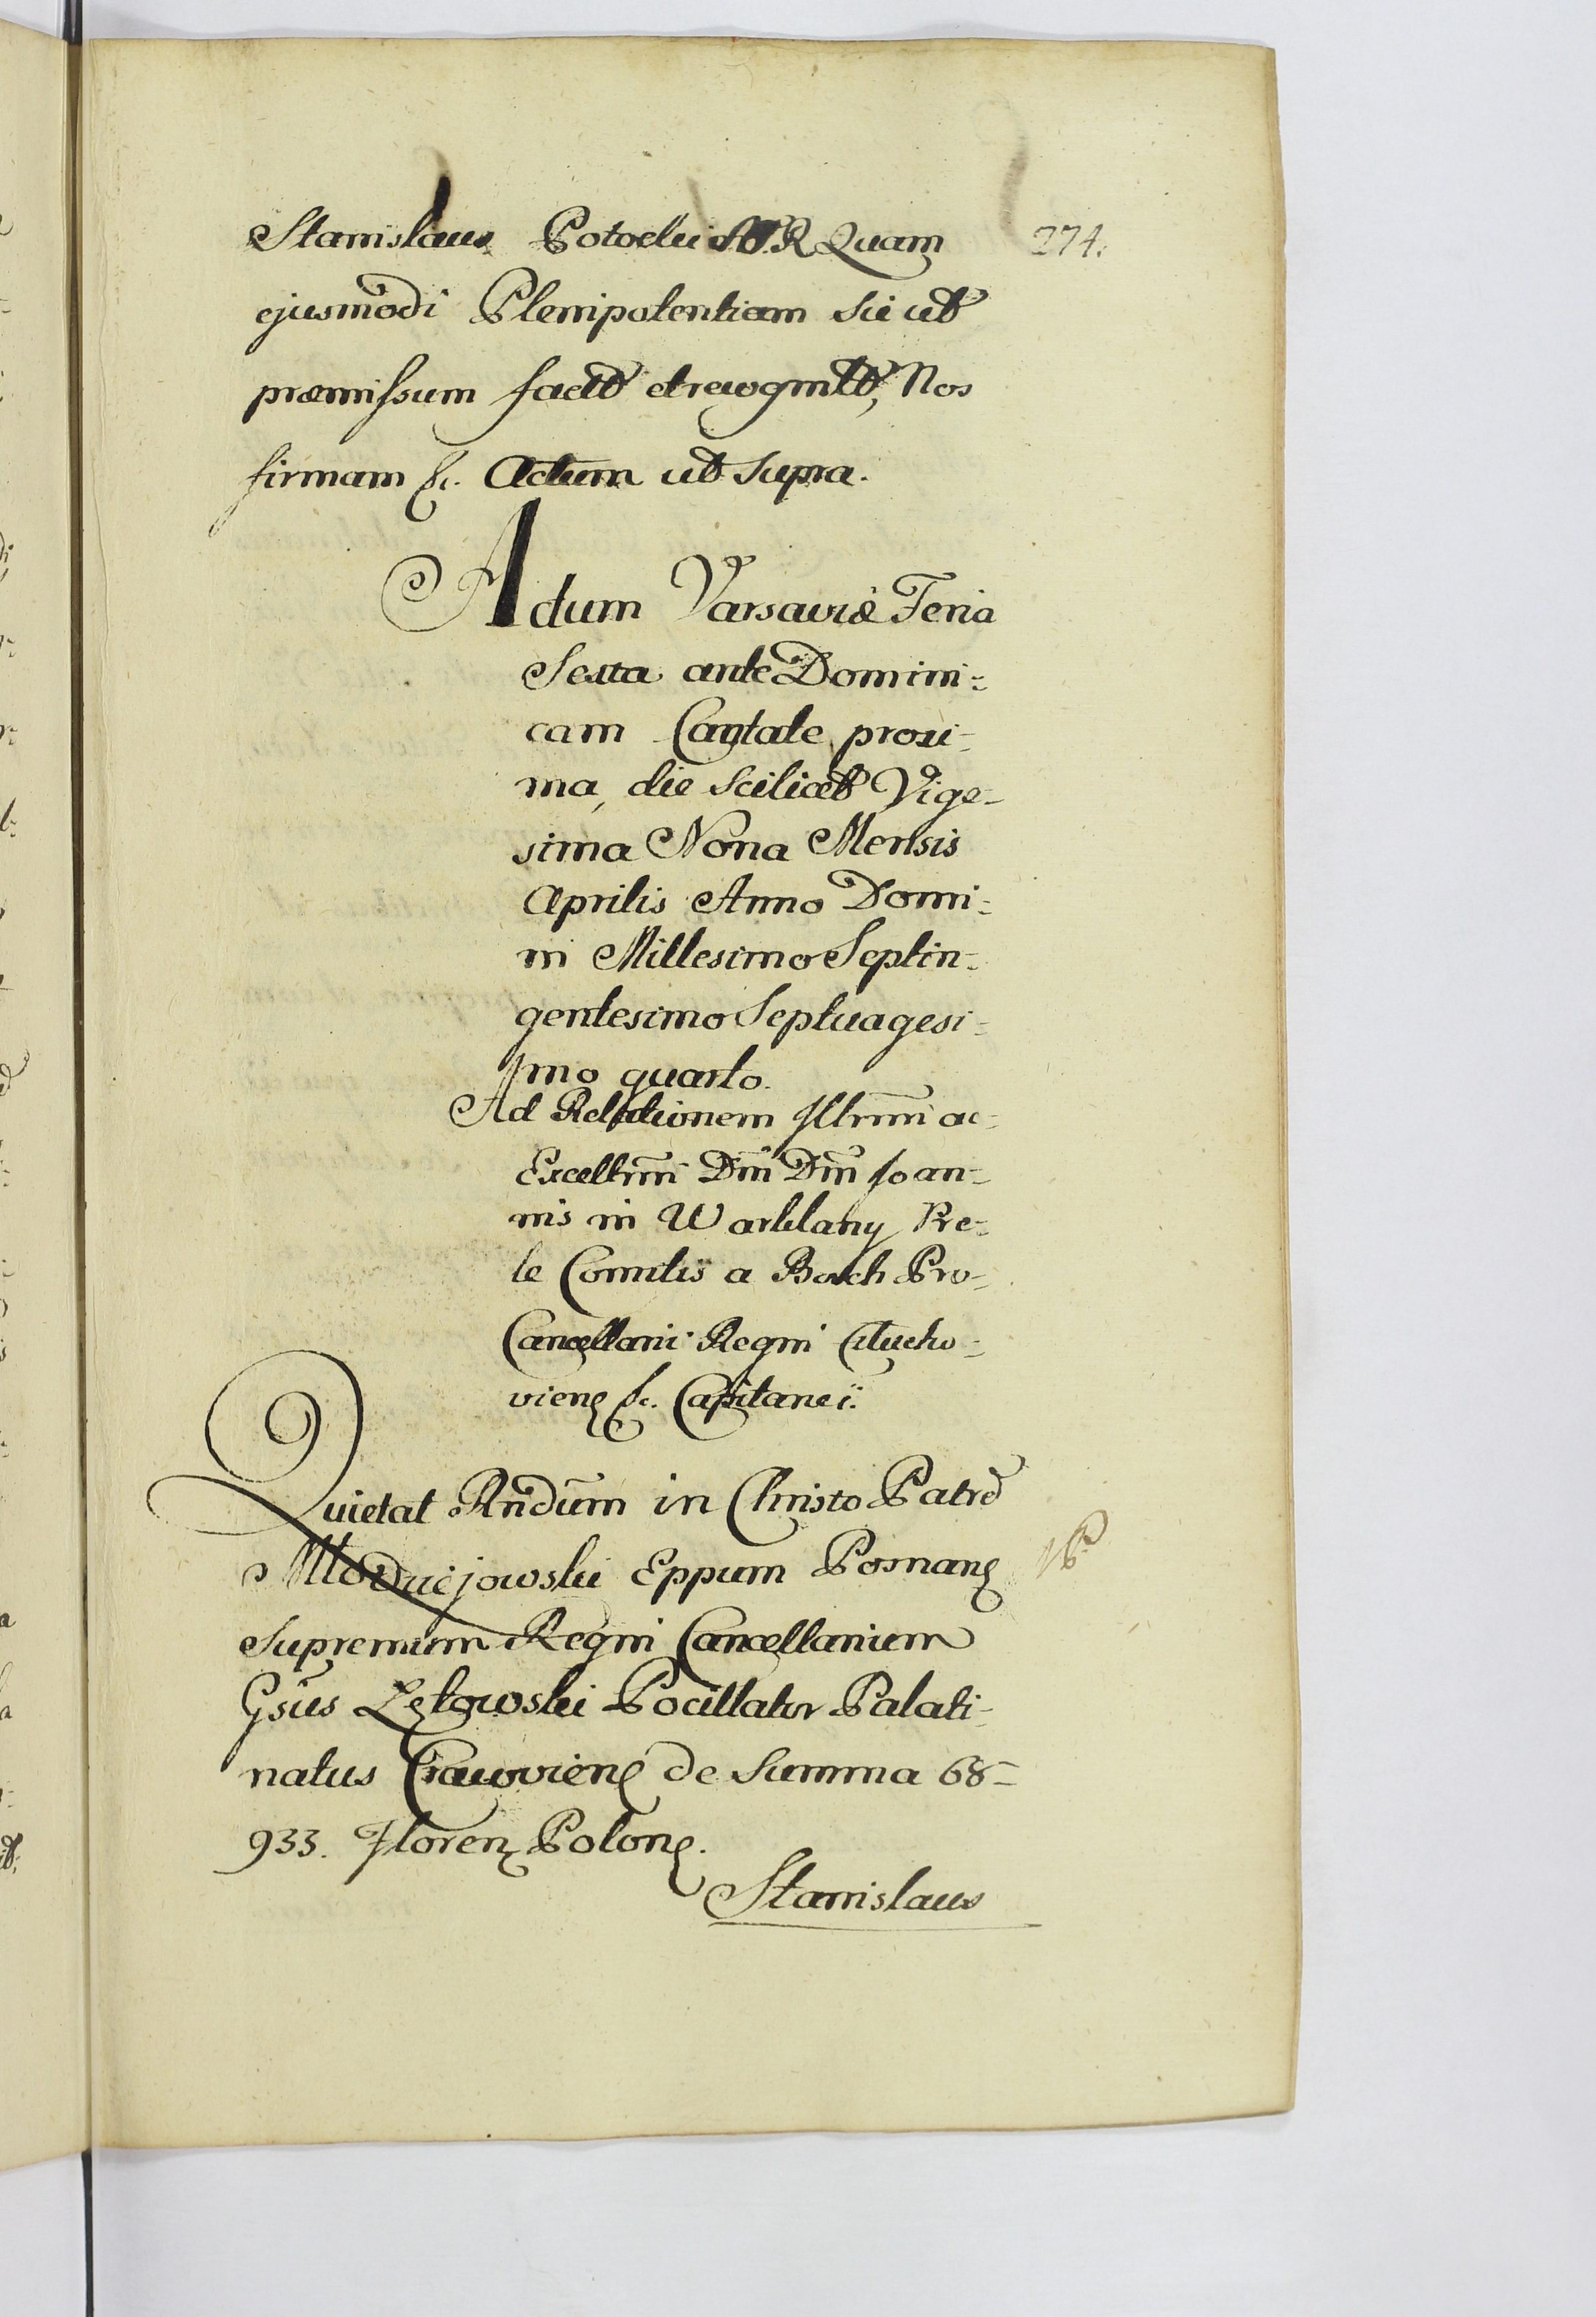 Stanislaus Potocki AVR Quam 274.
ejusmodi Plenipotentiam sic ut
præmissum factā et recognitā, Nos
firmam &c. Actum ut supra.
Actum Varsaviæ Feria
Sexta ante Domini=
cam Cantate proxi=
ma, die scilicet Vige=
sima Nona Mensis
Aprilis Anno Domi=
ni Millesimo Septin=
gentesimo Septuagesi=
mo quarto.
Ad Relationem Illrmi ac
Excellrmi Dni Dni Joan=
nis in Warklany Pre=
le Comitis a Borch Pro=
Cancellarii Regni
viens &c. Capitanei.
Quietat Rndum in Christo Patrē
Młodziejowski Eppum Posnans
Supremum Regni Cancellarium
Gsus Lętowski Pocillator Palati=
natus Cracoviens de Summa 68=
933. Floren Polons.
Stanislaus